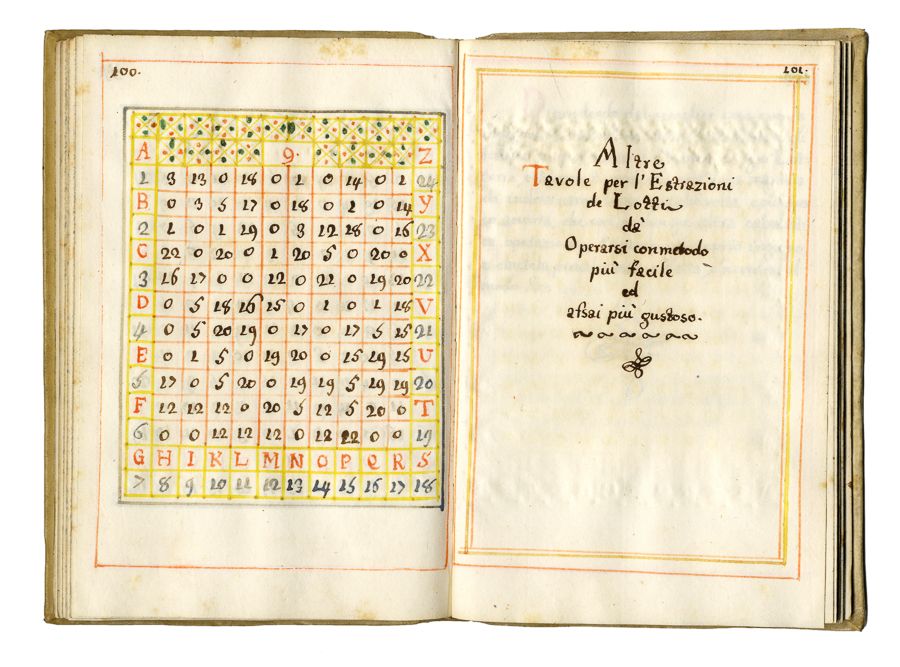 100.
A 9. Z
1 3 13 0 18 0 1 0 14 0 1 24
B 0 3 5 17 0 18 0 1 0 14 Y
2 1 0 1 19 0 3 12 18 0 16 23
C 22 0 20 0 1 20 5 0 20 0 X
3 16 17 0 0 12 0 21 0 19 20 22
D 0 5 18 16 15 0 1 0 1 18 V
4 0 5 20 19 0 17 0 17 5 15 21
E 0 1 5 0 19 20 0 15 19 15 U
5 17 0 5 20 0 19 19 5 19 19 20
F 12 12 12 0 20 5 12 5 20 0 T
6 0 0 12 12 12 0 12 12 0 0 19
G H I K L M N O P Q R S
7 8 9 10 11 12 13 14 15 16 17 18
101.
Altre
Tavole per l'Estrazioni
de Lotti
dà
Operarsi con metodo
più facile
ed
assai più gustoso.